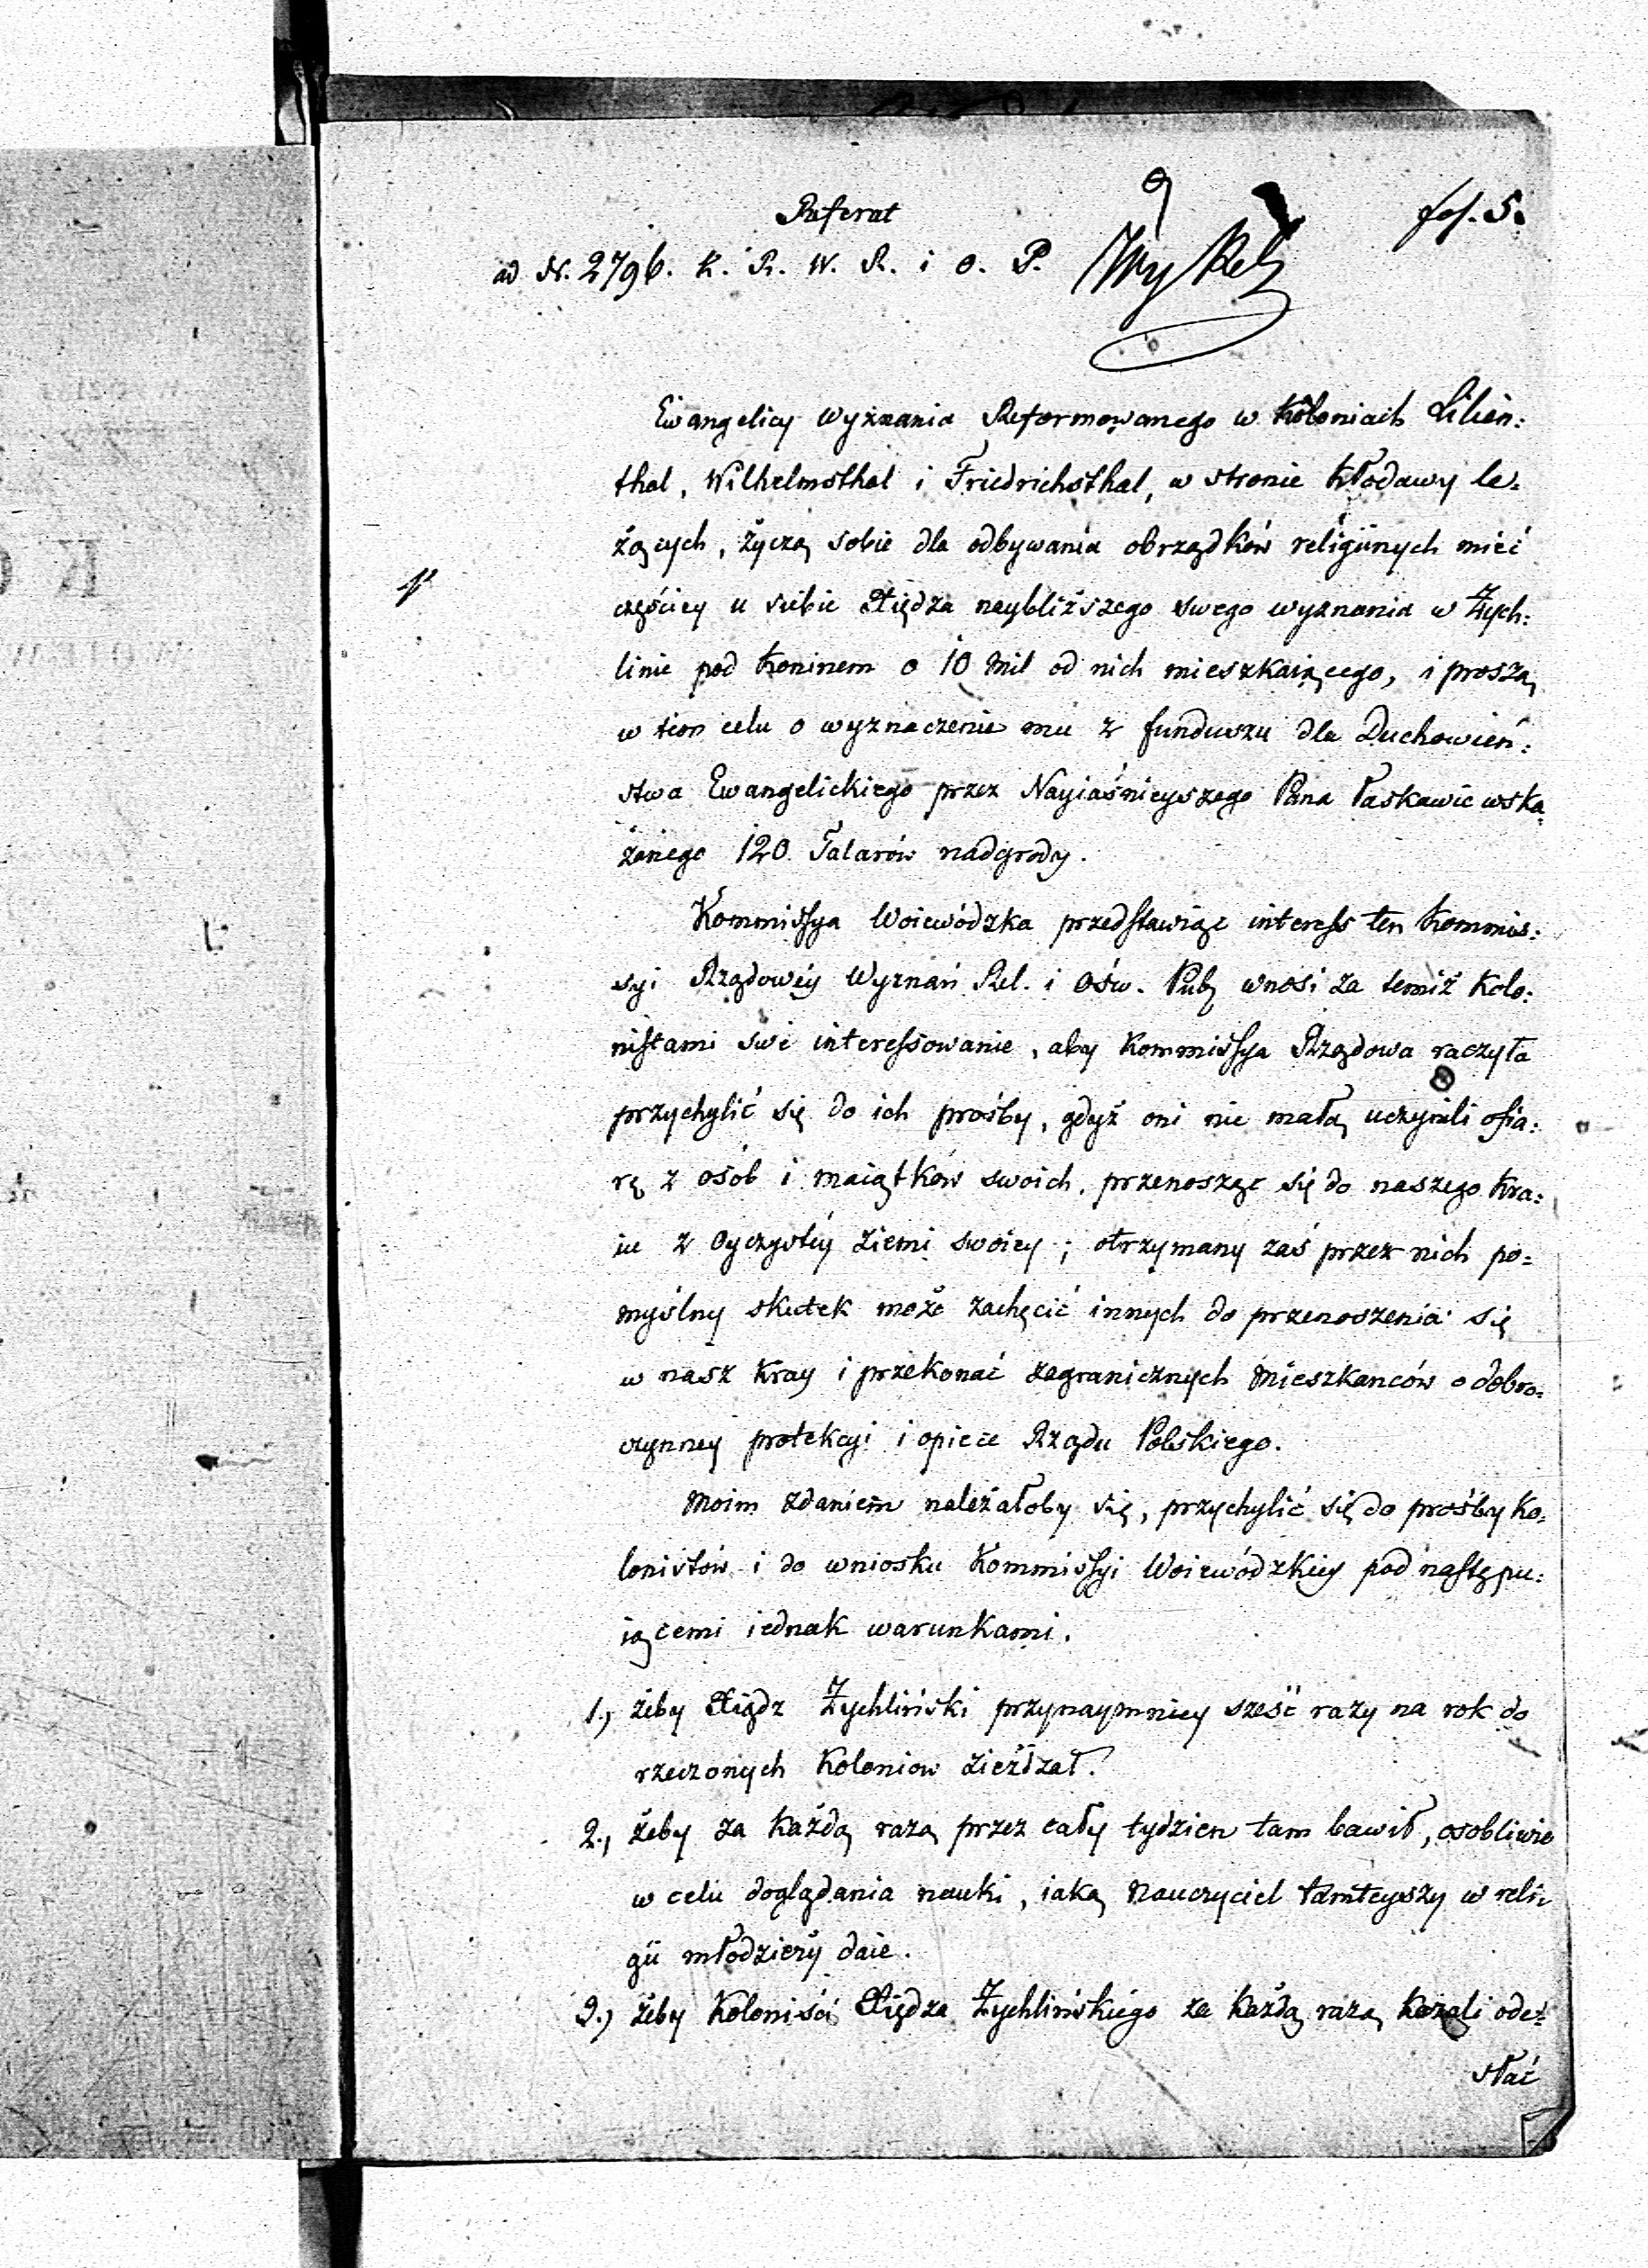 Referat
fol. 5.
ad N. 2796. K. R. W. R. i O. P.
Wy Rel
Ewangelicy wyznania Reformowanego w Koloniach Lilien:
thal, Wilhelmsthal i Friedrichsthal, w stronie Kłodawy le:
żących, życzą sobie dla odbywania obrządków religiinych mieć
częściey u siebie Xiędza naybliższego swego wyznania w Żych:
linie pod Koninem o 10 Mil od nich mieszkaiącego, i proszą
w tem celu o wyznaczenie mu z funduszu dla Duchowień:
stwa Ewangelickiego przez Nayiaśnieyszego Pana łaskawie wska:
zanego 120 Talarów nadgrody.
Kommissya Woiewódzka przedstawiąc interess ten Kommis:
syi Rządowéy Wyznań Rel. i Ośw. Pub. wnosi za temiż Kolo:
nistami swe interessowanie, aby Kommissya Rządowa raczyła
przychylić się do ich prośby, gdyż oni nie małą uczynili ofia:
rę z osób i maiątków swoich, przenosząc się do naszego Kra:
iu z Oyczystéy ziemi swoiey; otrzymany zaś przez nich po:
myślny skutek może zachęcić innych do przenoszenia się
w nasz Kray i przekonać zagranicznych Mieszkanców o dobro:
czynney protekcyi i opiece Rządu Polskiego.
Moim zdaniem należałoby się, przychylić się do prośby Ko:
lonistów i do wniosku Kommissyi Woiewódzkiey pod nastęępu:
iącemi iednak warunkami.
1.) żeby Xiądz Żychliński przynaymniey sześć razy na rok do
rzeczonych Koloniow zieżdzał.
2.) żeby za każdą razą przez cały tydzien tam bawił, osobliwie
w celu doglądania nauki, iaką Nauczyciel tamteyszy w reli:
gii młodzieży daie.
3.) żeby Koloniści Xiędza Żychlińskiego za każdą razą kazali ode:
słać